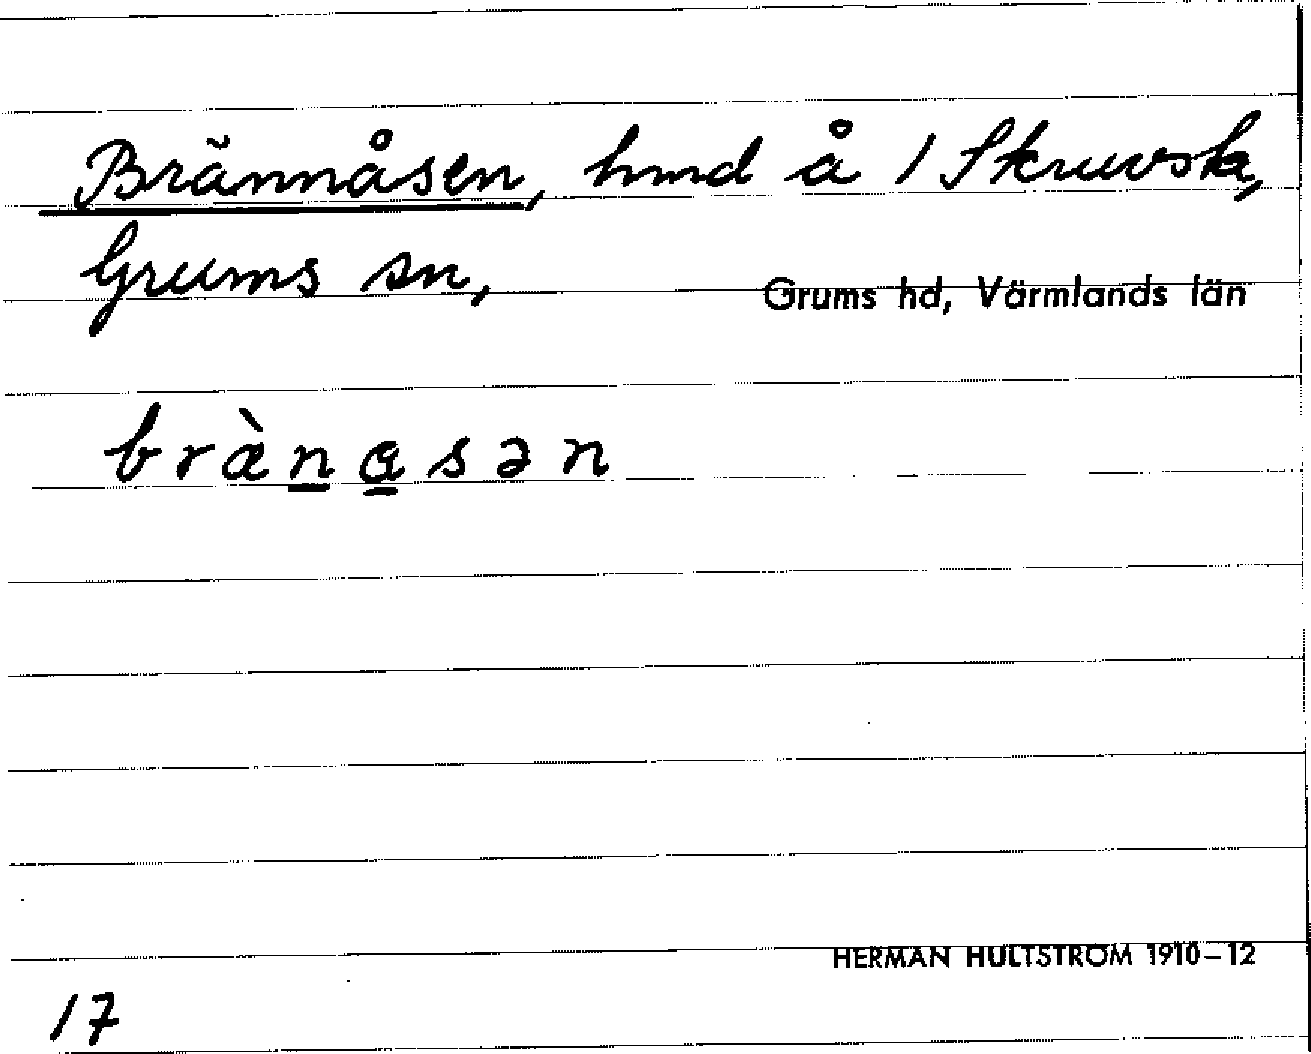 Brännåsen, hmd å / Skruvsta,
Grums sn, Grums hd, Värmlands län
bræ̀n̲a̲sən
HERMAN HULTSTRÖM 1910–12
17